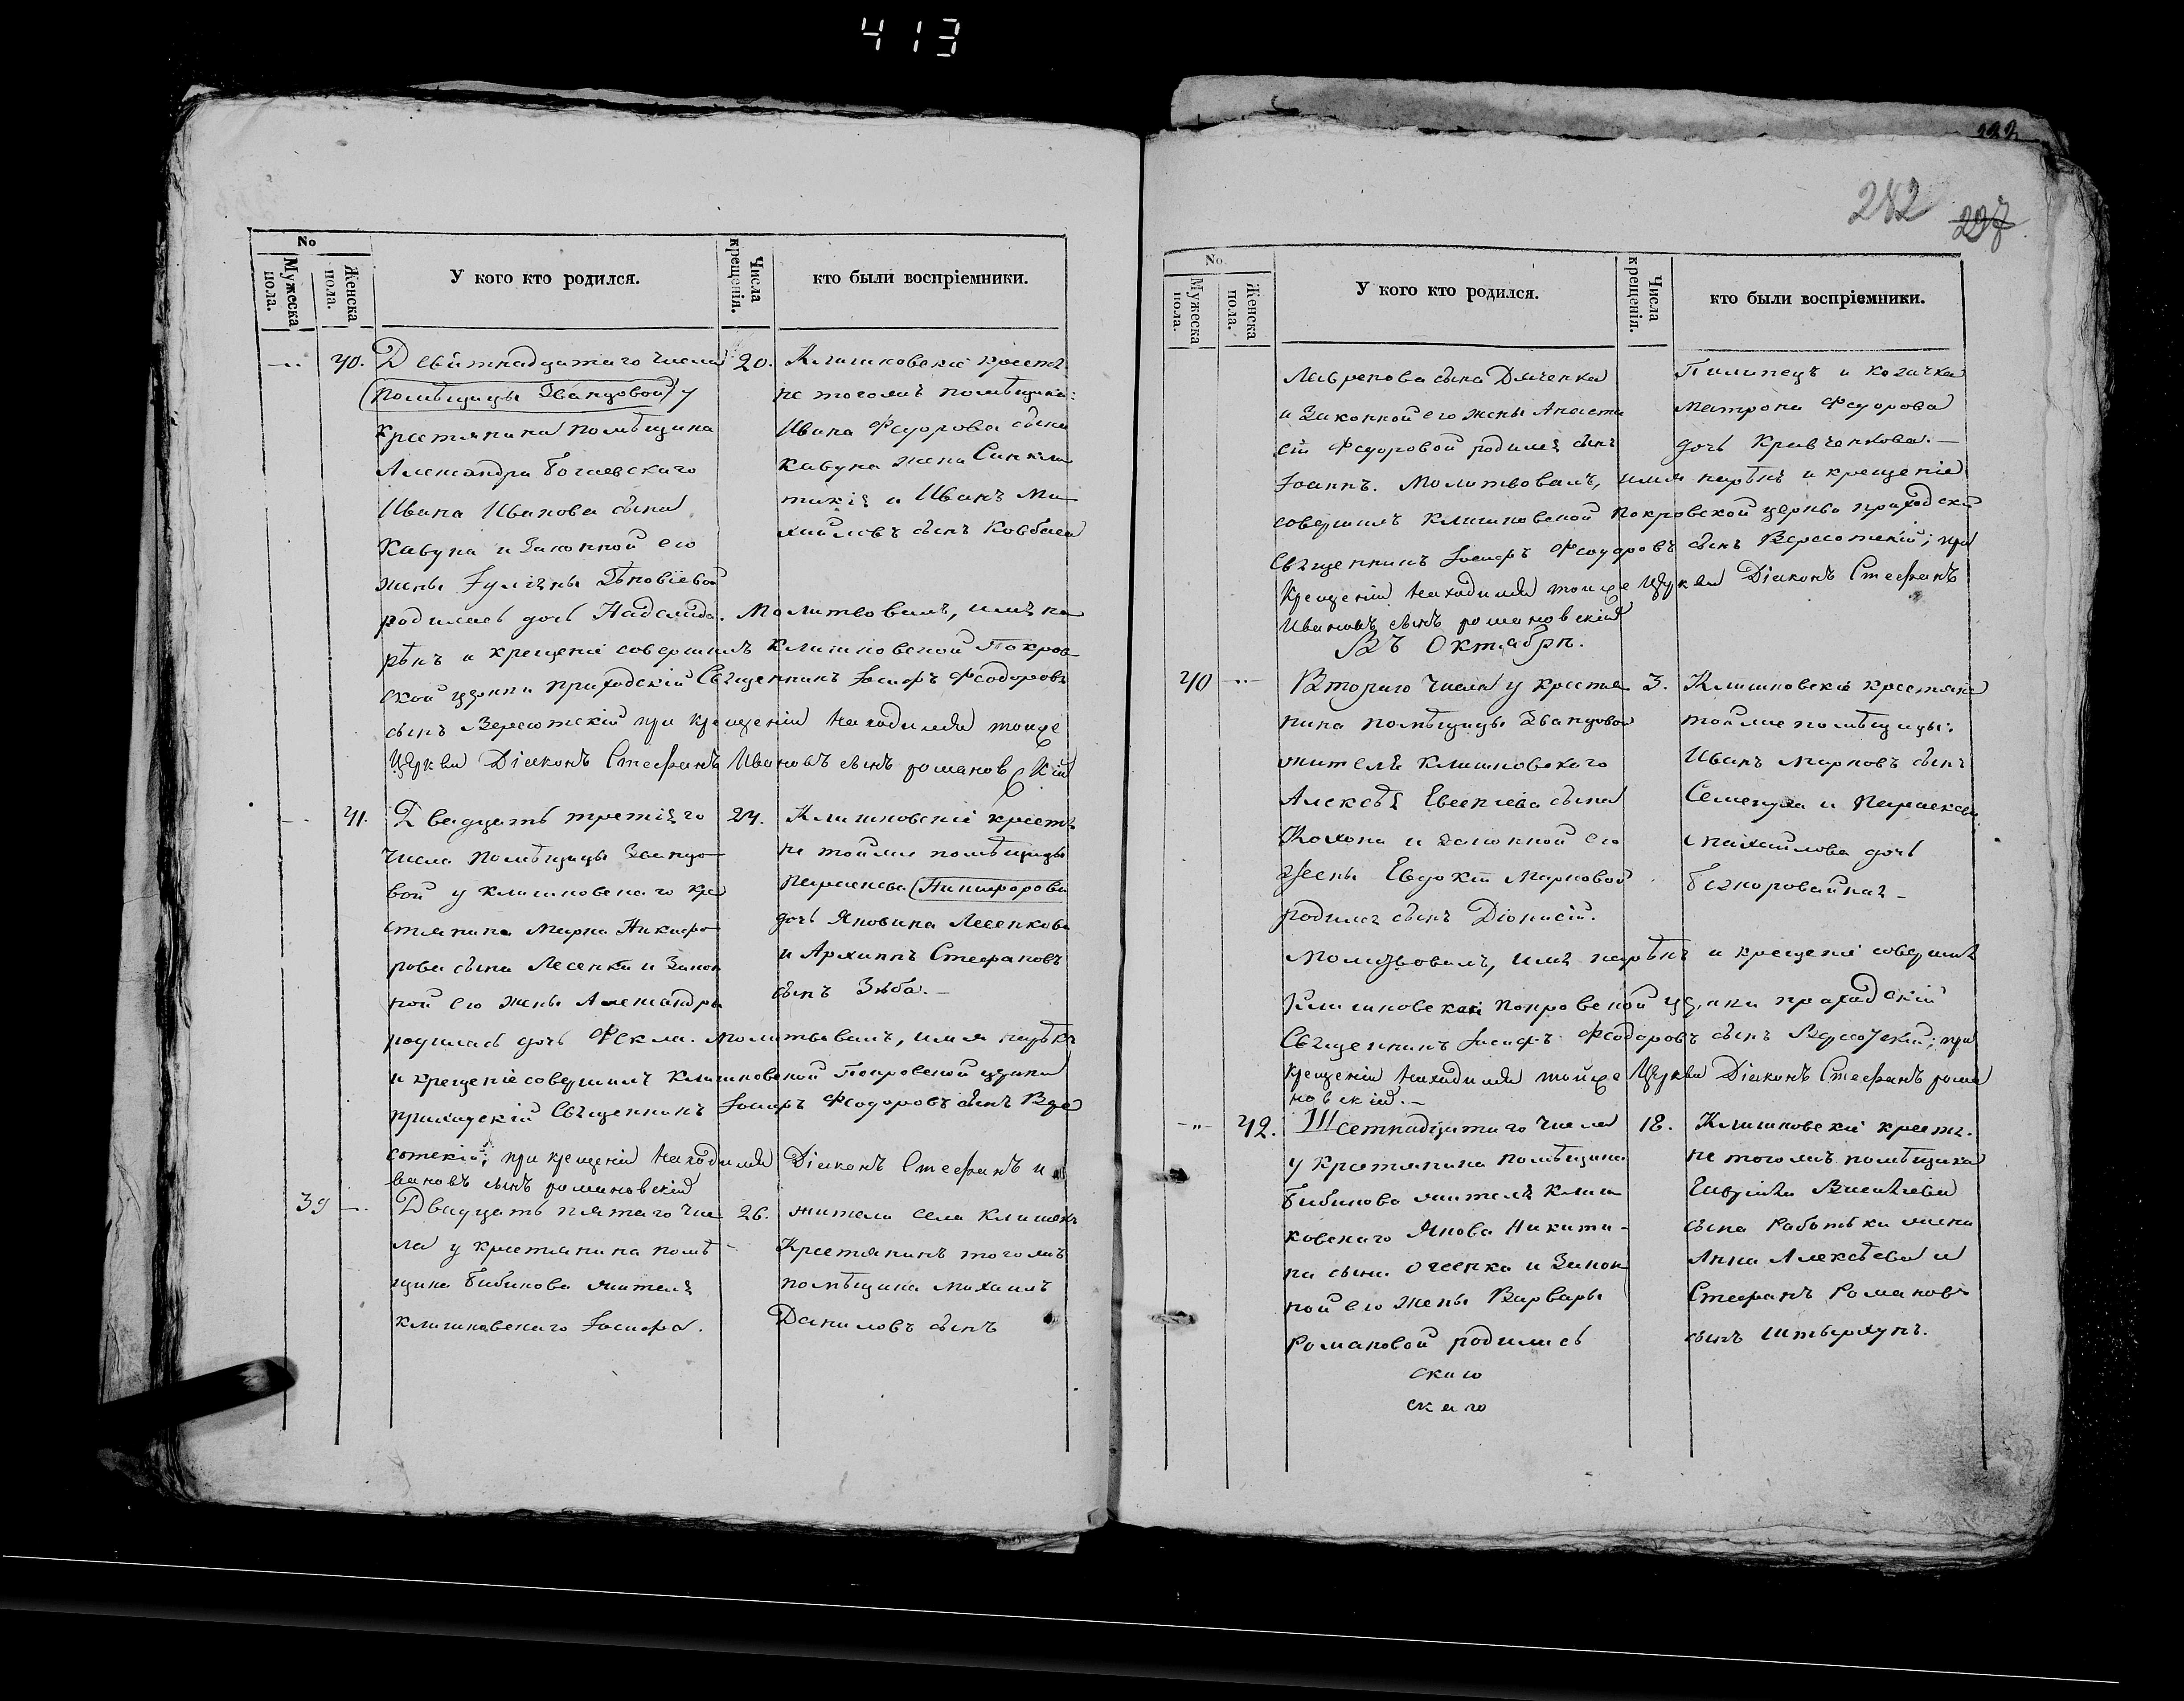 413
No
Мужеска пола.
Женска пола.
У кого кто родился.
Числа крещенія.
кто были воспріемники.
40. Девятнадцатаго числа 20.
помѣщицы Званцовой у
крестянина помѣщика
Александра
Ивана Иванова сына
Кавуна и Законной его
жены Іуліаны
родилась дочь Надежда. Молитвовалъ, имя на
рѣкъ и крещеніе совершилъ Клишковской Покров
ской церкви приходскій Священникъ Іосифъ Феодоровъ
сынъ Вересотскій при крещеніи находился тояже
Церкви Діаконъ Стефанъ Ивановъ сынъ романовскій
Клишковскіе крестя
не тогожъ помѣщика:
Ивана Федорова сына
Кавуна жена Синкли
тикія и Иванъ Ми
хайловъ сынъ
41. Двадцать третіяго 24.
числа помѣщицы Званцо
вой у клишковскаго кре
стянина Марка Никифо
рова сына Лесенка и Закон
ной его жены Александры
родилась дочь Фекла. Молитвовалъ, имя нарѣкъ
и крещеніе совершилъ Клишковской Покровской церкви
приходскій Священникъ Іосифъ Феодоровъ сынъ Вере
сотскій; при крещеніи находился Діаконъ Стефанъ И
вановъ сынъ романовскій
Клишковскіе крестя
не тойже помѣщицы
Параскева Никифорова
дочь Якова Лесенкова
и Архипъ Стефановъ
сынъ Зюба.
39 Двадцать пятаго чис 26.
ла у крестянина помѣ
щика Бибикова жителя
клишковскаго Іосифа.
жители села Клишокъ
Крестянинъ тогожъ
помѣщика Михаилъ
Даниловъ сынъ
222
282
297
No
Мужеска пола.
Женска пола.
У кого кто родился.
Числа крещенія.
кто были воспріемники.
Лавренова сына Дяченка
и Законной его жены Анаста
сіи Федоровой родился сынъ
Іоаннъ. Молитвовалъ, имя нарѣкъ и крещеніе
совершилъ клишковской покровской церкви приходскій
Священникъ Іосифъ Феодоровъ сынъ Вересотскій; при
крещеніи находился тояже Церкви Діаконъ Стефанъ
Ивановъ сынъ романовскій
Пилипецъ и козачка
Матрона Федорова
дочь Кравченкова.
Въ Октабрѣ.
40 Втораго числа у крестя 3.
нина помѣщицы Званцовой
жителя клишковского
Алексѣя Евсеніева сына
Кохона и законной его
жены Евдокіи Марковой
родился сынъ Діонисій.
Молитвовалъ, имя нарѣкъ и крещеніе совершилъ
Клишковской покровской церкви приходскій
Священникъ Іосифъ Феодоровъ сынъ Вересотскій; при
крещеніи находился тойже Церкви Діаконъ Стефанъ рома
новскій.
Клишковскіе крестяне
тойже помѣщицы:
Иванъ Марковъ сынъ
и Параскева
Михайлова дочь
42. Шестнадцатаго числа 18.
у крестянина помѣщика
Бибикова жителя клиш
ковскаго Якова Никити
на сына и Закон
ной его жены Варвары
Романовой родилась
скаго
скаго
Клишковскіе крестя
не тогожъ помѣщика
Гавріила Василіева
сына жена
Анна Алексѣева и
Стефанъ Романовъ
сынъ